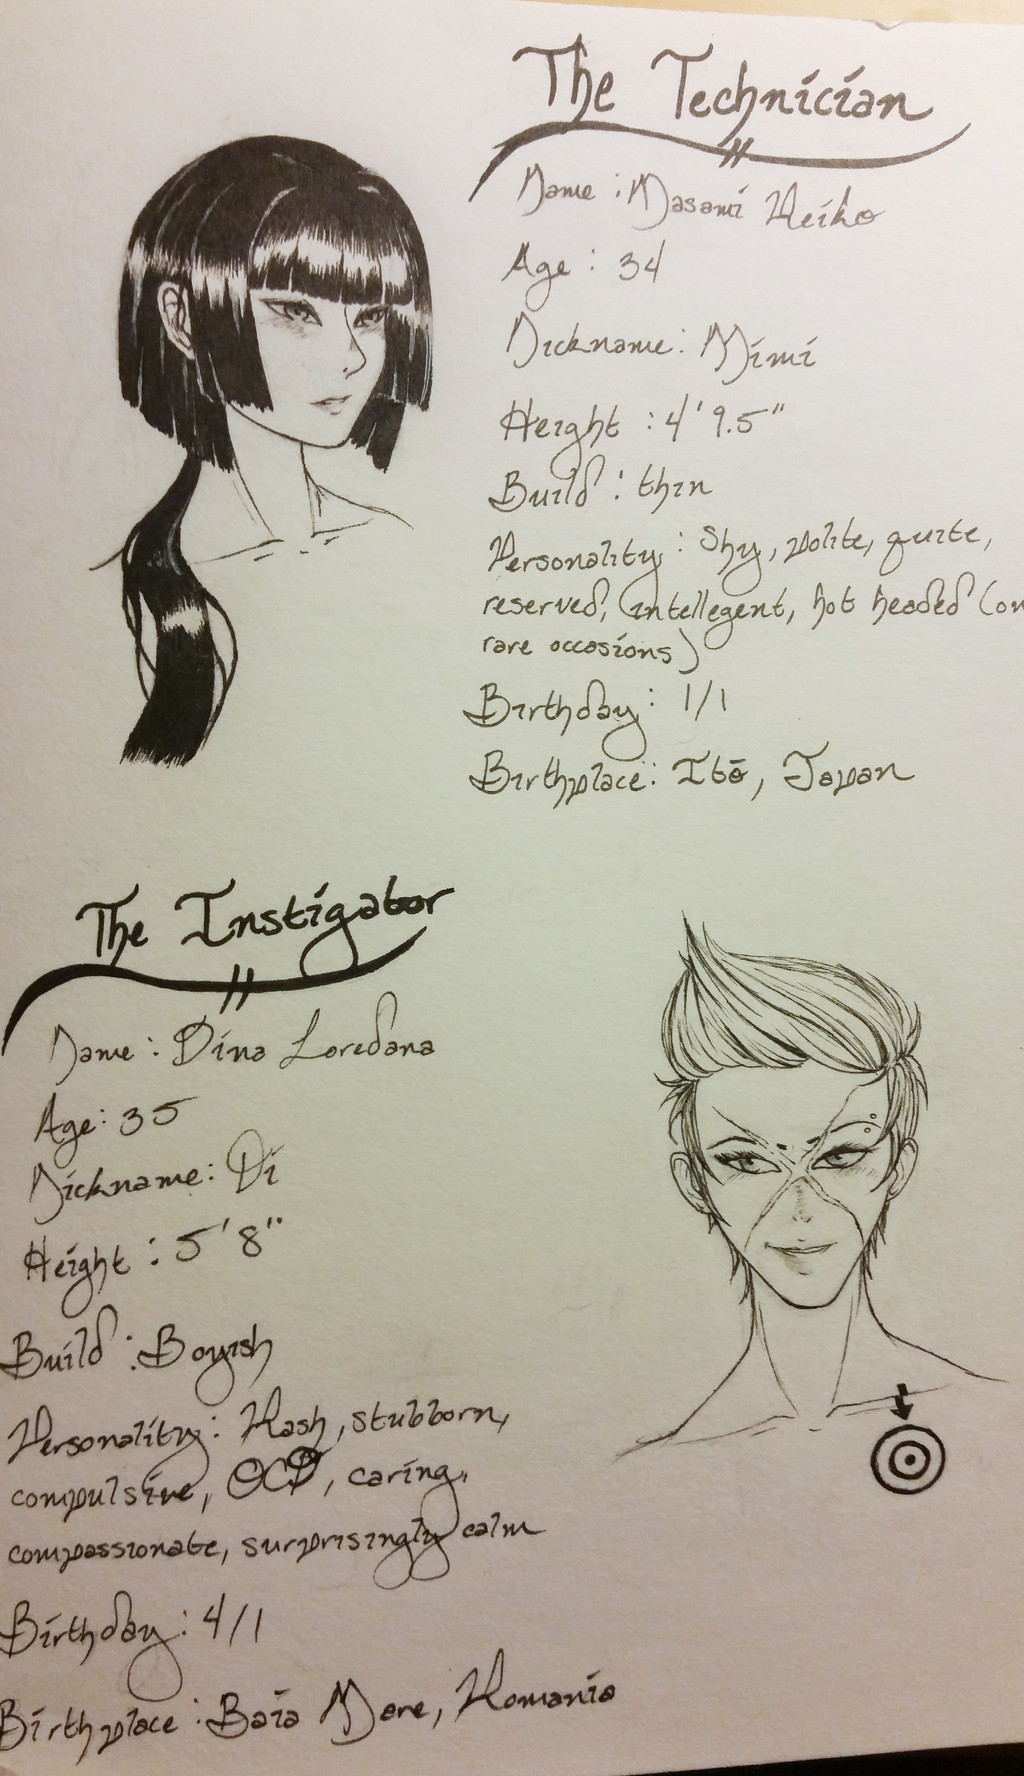 The Technician
Name : Masami Reiko
Age : 34
Nickname : Mimi
Height : 4'9.5"
Build : thin
Personality : Shy, polite, quite,
reserved, intellegent, hot headed (on
rare occasions)
Birthday : 1/1
Birthplace : Itō, Japan
The Instigator
Name : Dina Loredana
Age : 35
Nickname : Di
Height : 5'8"
Build : Boyish
Personality : Rash, stubborn,
compulsive, OCD, caring,
compassionate, surprisingly calm
Birthday : 4/1
Birthplace : Baia Mare, Romania